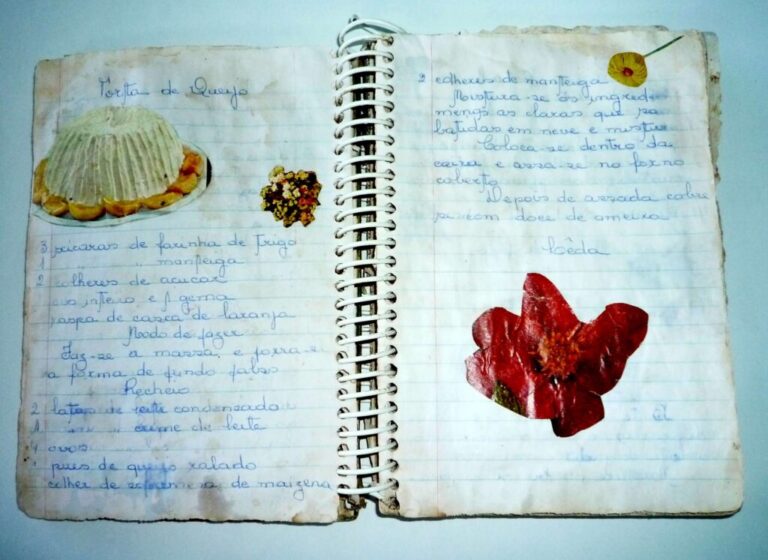 Torta de Queijo
3 xicaras de farinha de trigo
1 " " manteiga
2 colheres de acucar
ovo inteiro e 1 gema
raspa de casca de laranja
Modo de fazer
Faz-se a massa, e forra-se
a forma de fundo falso
Recheio
2 latas de leite condensado
1 " " creme de leite
4 ovos
pires de queijo ralado
colher de sopa de maizena
2 colheres de manteiga
Mistura-se os ingredi
menos as claras que sa
batidas em neve e mistur
Coloca-se dentro da
e assa-se no forno
coberto
Depois de assada cobre
se com doce de ameixa
Lêda